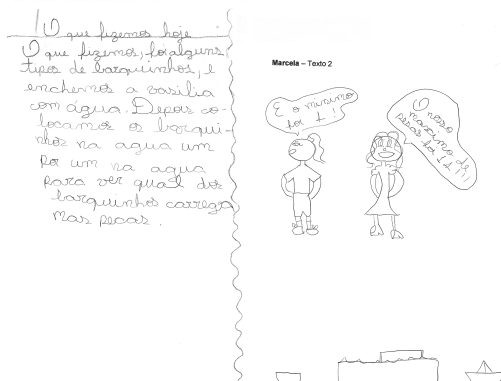 O que fizemos hoje
O que fizemos, foi alguns
tipos de barquinhos, e
enchemos a vasilia
com água. Depois co-
locamos os barqui-
nhos na agua um
por um na agua
para ver qual dos
barquinhos carrega
mas pecas.
Marcela – Texto 2
E o minimo
foi 1!
O nosso
maximo de
pecas foi 11!!!